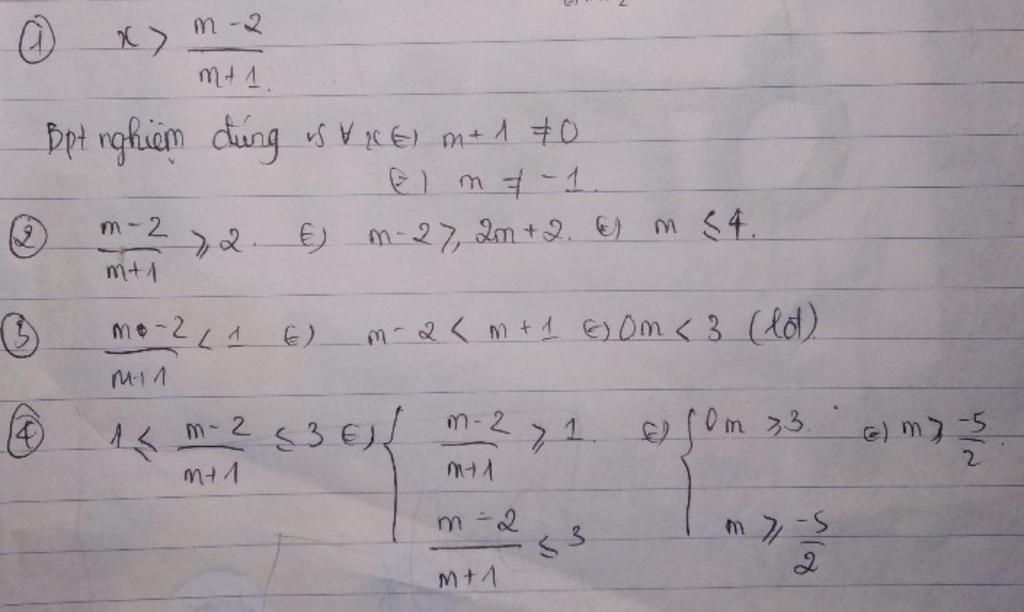 ① x > \frac{m-2}{m+1}.
Bpt nghiệm đúng vs ∀ x ⇔ m+1 ≠ 0
⇔ m ≠ -1.
② \frac{m-2}{m+1} ⩾ 2. ⇔ m-2 ⩾ 2m+2. ⇔ m ⩽ 4.
③ \frac{m-2}{m+1} < 1 ⇔ m-2 < m+1 ⇔ 0m < 3 (lđt).
④ 1 ⩽ \frac{m-2}{m+1} ⩽ 3 ⇔ { \frac{m-2}{m+1} ⩾ 1. ⇔ { 0m ⩾ 3. ⇔ m ⩾ \frac{-5}{2}.
\frac{m-2}{m+1} ⩽ 3 m ⩾ \frac{-5}{2}